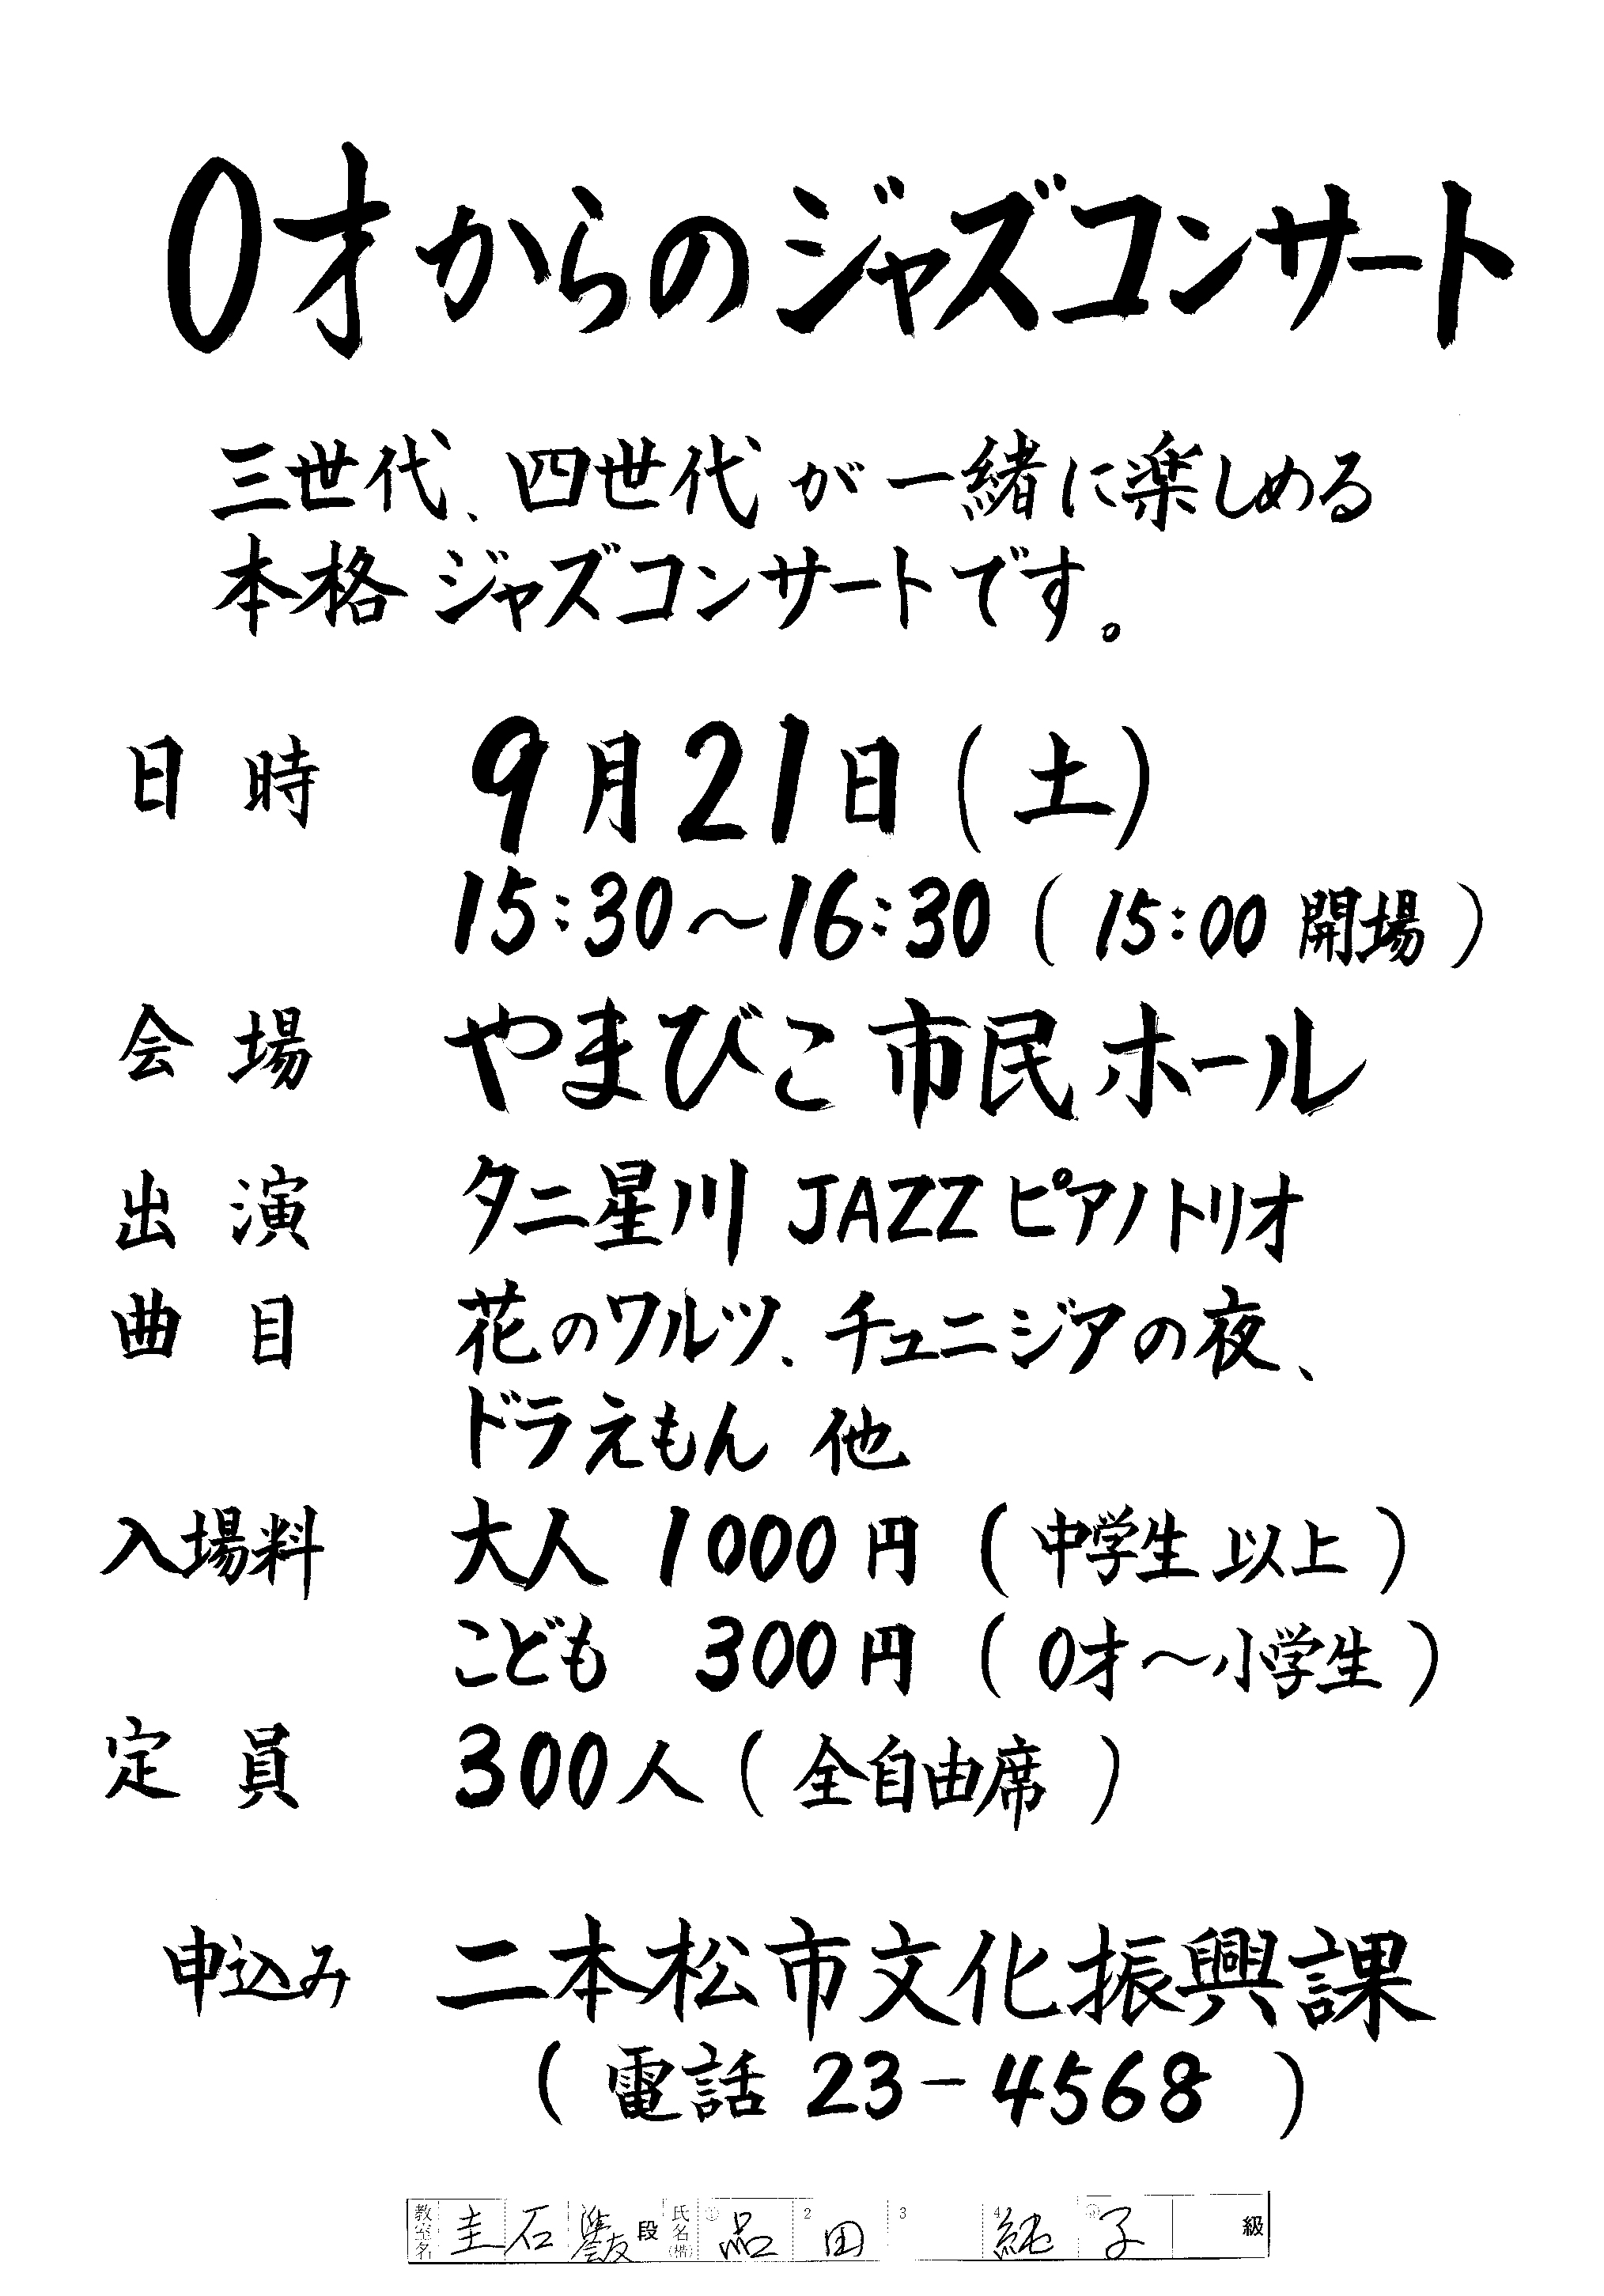 0才からのジャズコンサート
三世代、四世代が一緒に楽しめる
本格ジャズコンサートです。
日時 9月21日(土)
15:30～16:30(15:00開場)
会場 やまびこ市民ホール
出演 タニ星川 JAZZピアノトリオ
曲目 花のワルツ、チュニジアの夜、
ドラえもん 他
入場料 大人 1000円(中学生以上)
こども 300円(0才～小学生)
定員 300人(全自由席)
申込み 二本松市文化振興課
(電話 23-4568)
教室名 圭石 段 氏名(楷) 1 品 2 田 3 4 純 5 子 級